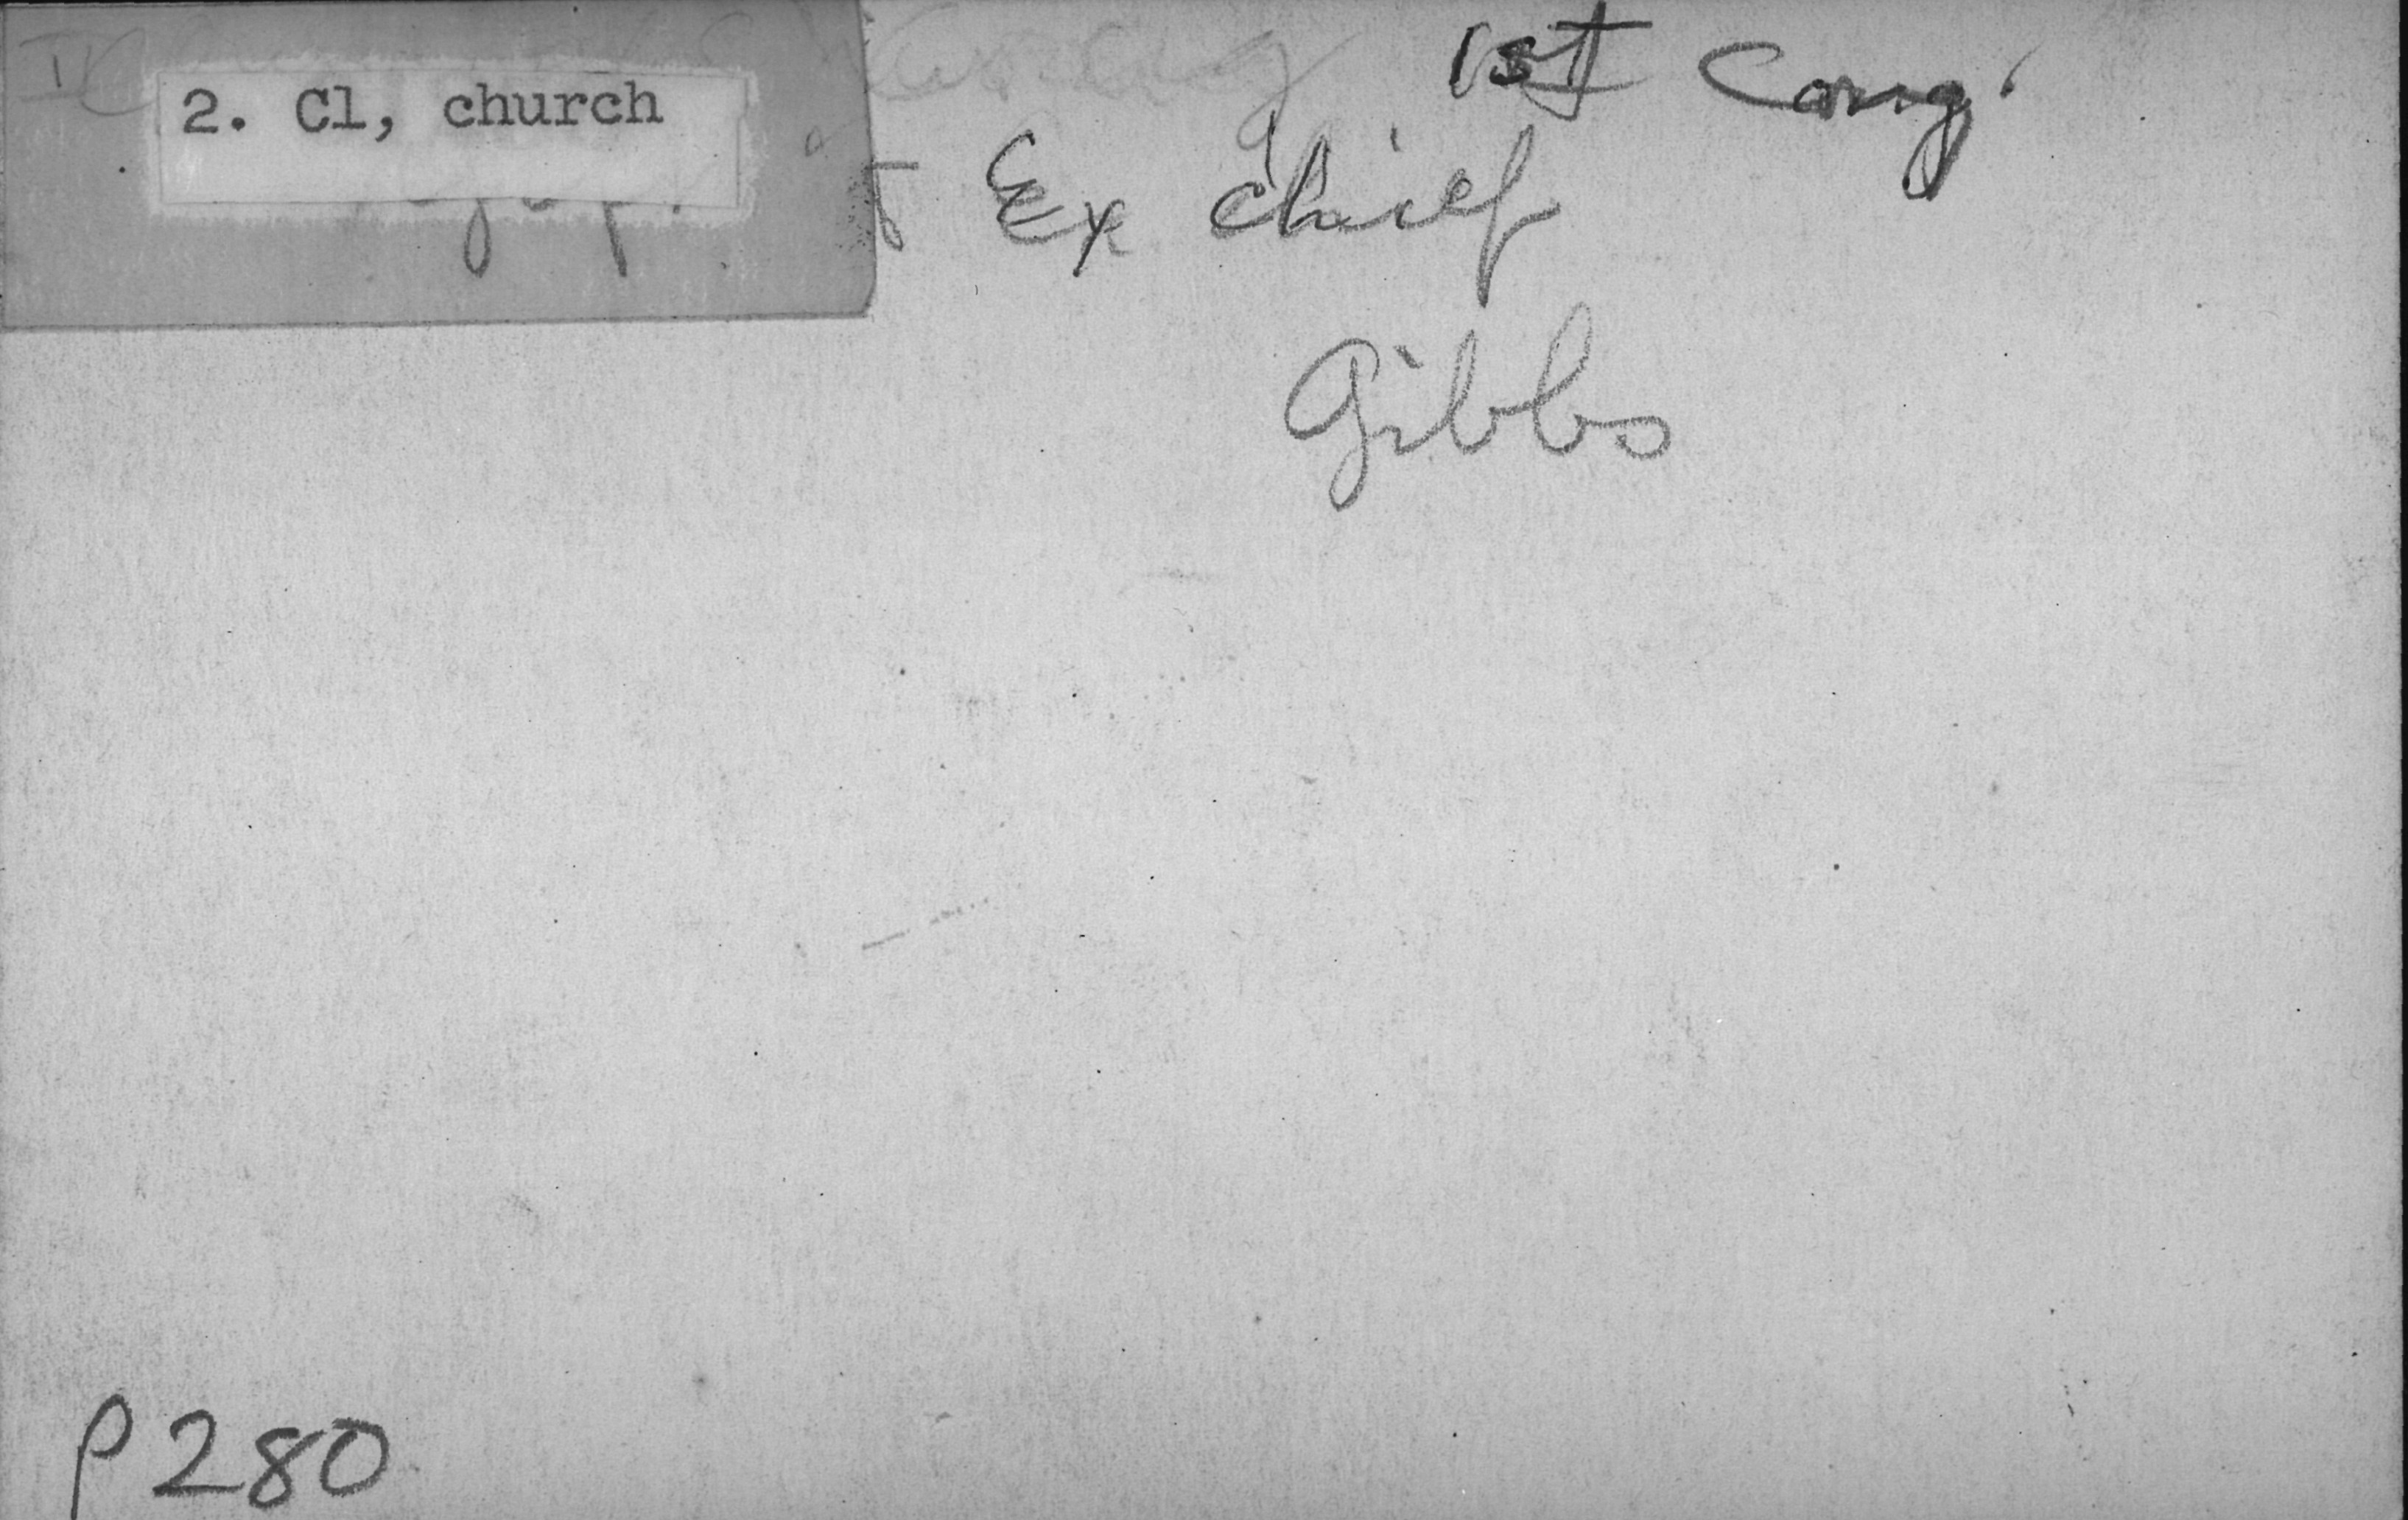 2. Cl, church
1st Cong.
Ex chief
Gibbs
P280